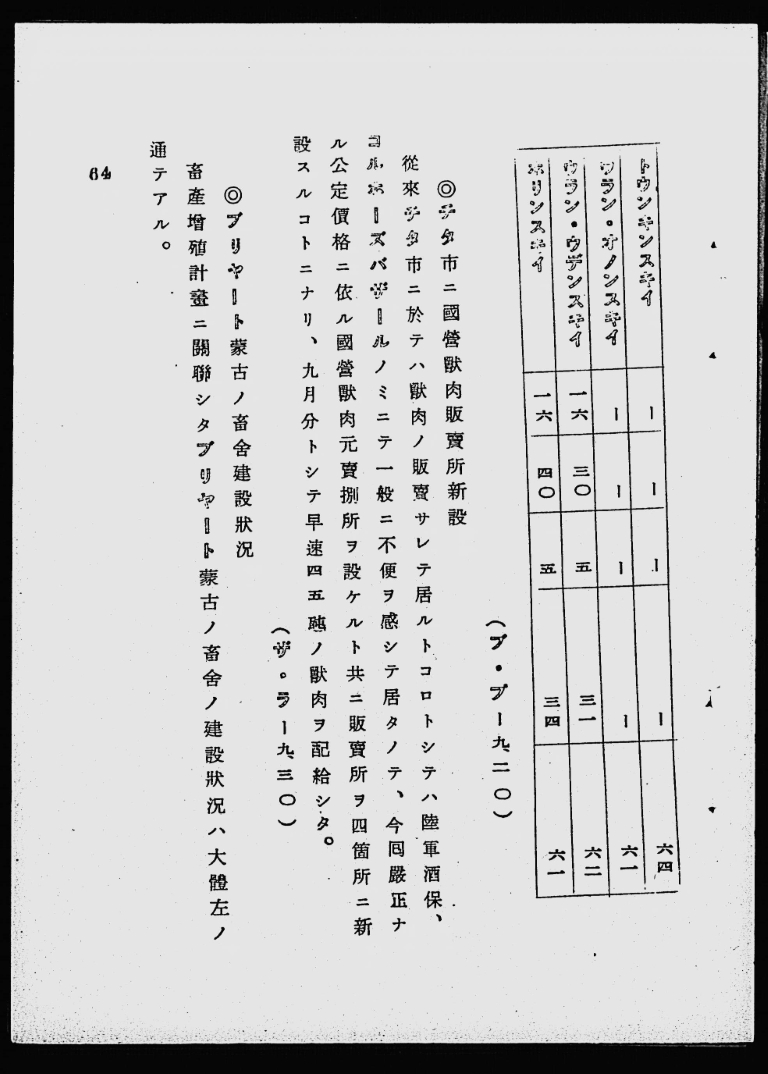 トウンキンスキイ ー ー ー ー 六四
ウラン・オノンスキイ ー ー ー ー 六一
ウラン・ウデンスキイ 一六 三〇 五 三一 六二
ホリンスキイ 一六 四〇 五 三四 六一
(ブ・プー九、二〇)
◎チタ市ニ國營獸肉販賣所新設
從來チタ市ニ於テハ獸肉ノ販賣サレテ居ルトコロトシテハ陸軍酒保、
コルホーズバザールノミニテ一般ニ不便ヲ感シテ居タノテ、今囘嚴正ナ
ル公定價格ニ依ル國營獸肉元賣捌所ヲ設ケルト共ニ販賣所ヲ四箇所ニ新
設スルコトニナリ、九月分トシテ早速四五瓲ノ獸肉ヲ配給シタ。
(ザ。ラー九、三〇)
◎ブリヤート蒙古ノ畜舍建設狀況
畜產增殖計畫ニ關聯シタブリヤート蒙古ノ畜舍ノ建設狀況ハ大體左ノ
通テアル。
64